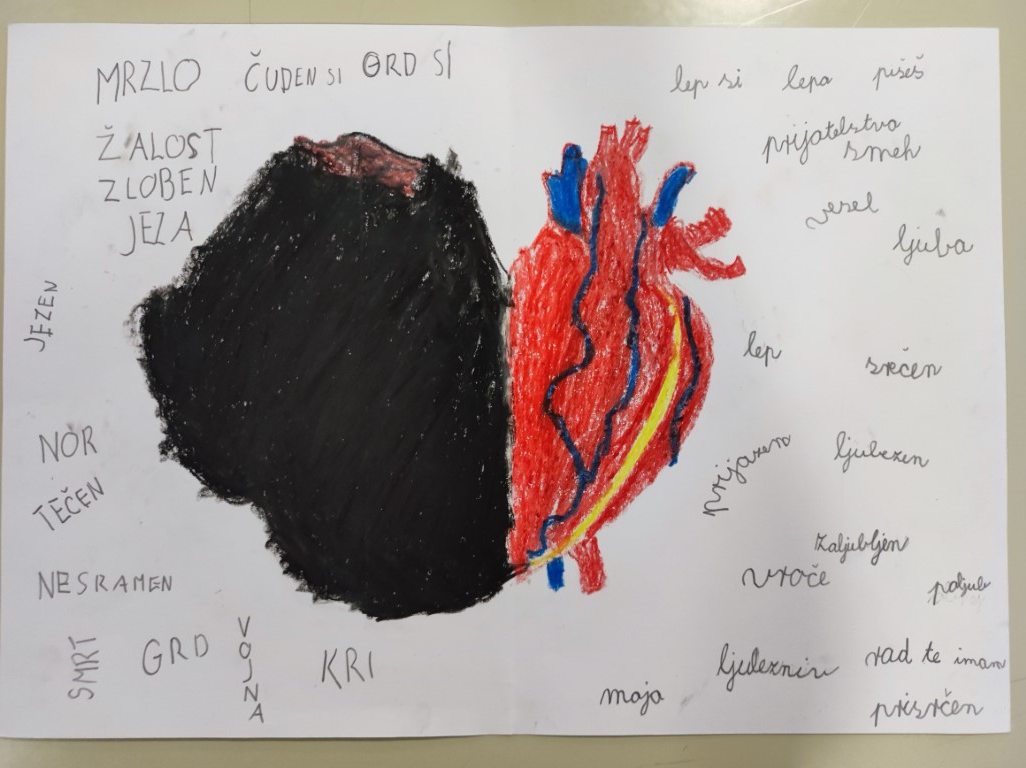 MRZLO ČUDEN SI GRD SI
ŽALOST
ZLOBEN
JEZA
JEZEN
NOR
TEČEN
NESRAMEN
SMRT
GRD
VOJNA
KRI
lep si lepa pišeš
prijatelstvo
smeh
vesel
ljuba
lep
srčen
prijazen
ljubezen
zaljubljen
vroče
poljub
ljubezniv
rad te imam
moja
prisrčen